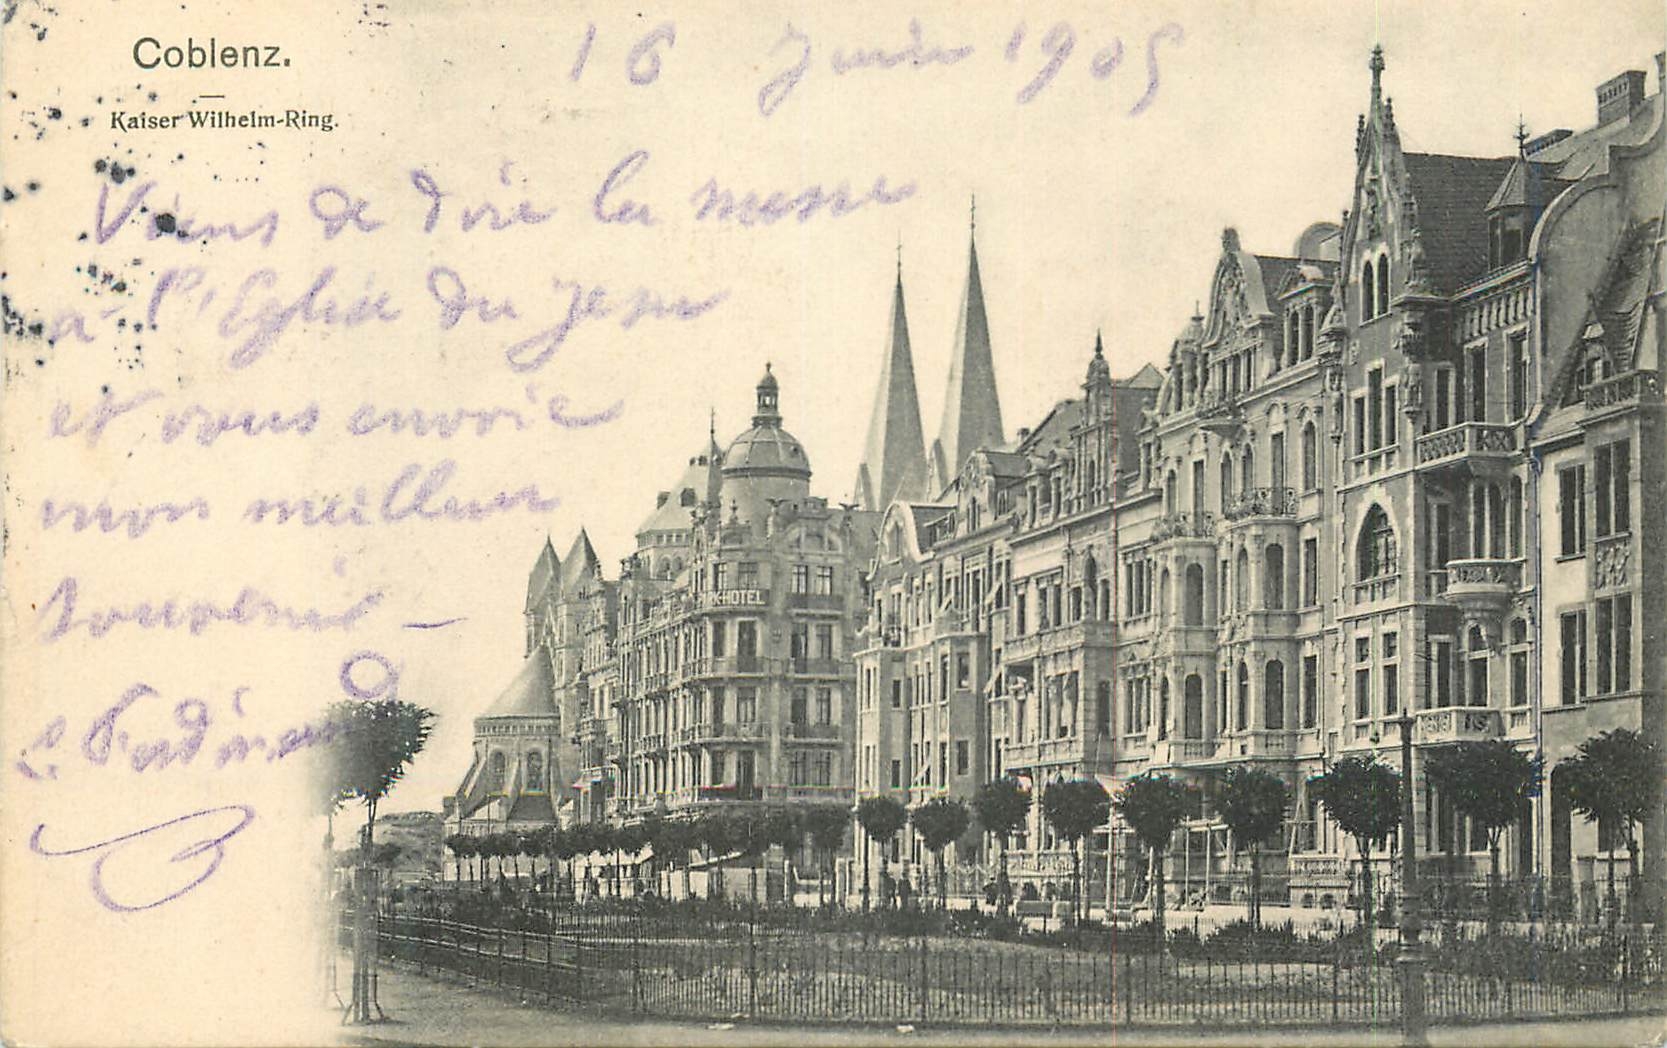 Coblenz.
Kaiser Wilhelm-Ring.
16 Juin 1905
Viens de dire la messe
a l'Eglise du Jesu
et vous envoie
mon meilleur
souvenir –
PARK-HOTEL